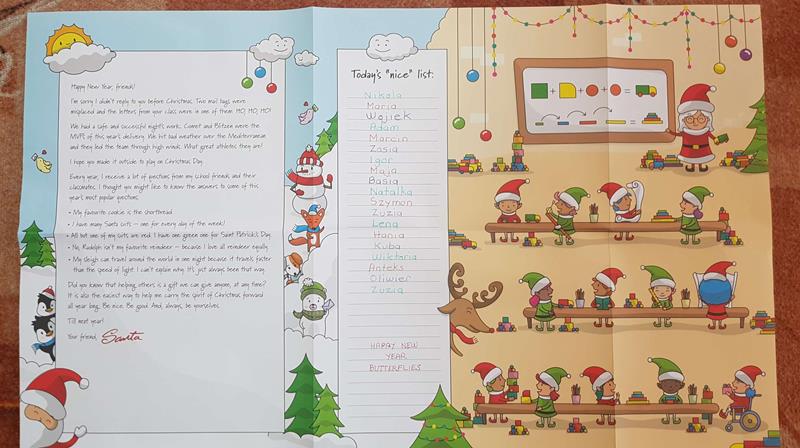 Happy New Year, friend!
I'm sorry I didn't reply to you before Christmas. Two mail bags were
misplaced and the letters from your class were in one of them. HO, HO, HO!
We had a safe and successful night's work. Comet and Blitzen were the
MVPs of this year's delivery. We hit bad weather over the Mediterranean
and they led the team through high winds. What great athletes they are!
I hope you made it outside to play on Christmas Day.
Every year, I receive a lot of questions from my school friends and their
classmates. I thought you might like to know the answers to some of this
year's most popular questions.
• My favourite cookie is the shortbread.
• I have many Santa suits – one for every day of the week!
• All but one of my suits are red. I have one green one for Saint Patrick's Day.
• No, Rudolph isn't my favourite reindeer – because I love all reindeer equally.
• My sleigh can travel around the world in one night because it travels faster
than the speed of light. I can't explain why. It's just always been that way.
Did you know that helping others is a gift we can give anyone, at any time?
It is also the easiest way to help me carry the spirit of Christmas forward
all year long. Be nice. Be good. And, always, be yourselves.
Till next year!
Your friend, Santa
Today's "nice" list:
Nikola
Maria
Wojtek
Adam
Marcin
Zosia
Igor
Maja
Basia
Natalka
Szymon
Zuzia
Lena
Hania
Kuba
Wiktoria
Anteks
Oliwier
Zuzia
HAPPY NEW
YEAR
BUTTERFLIES